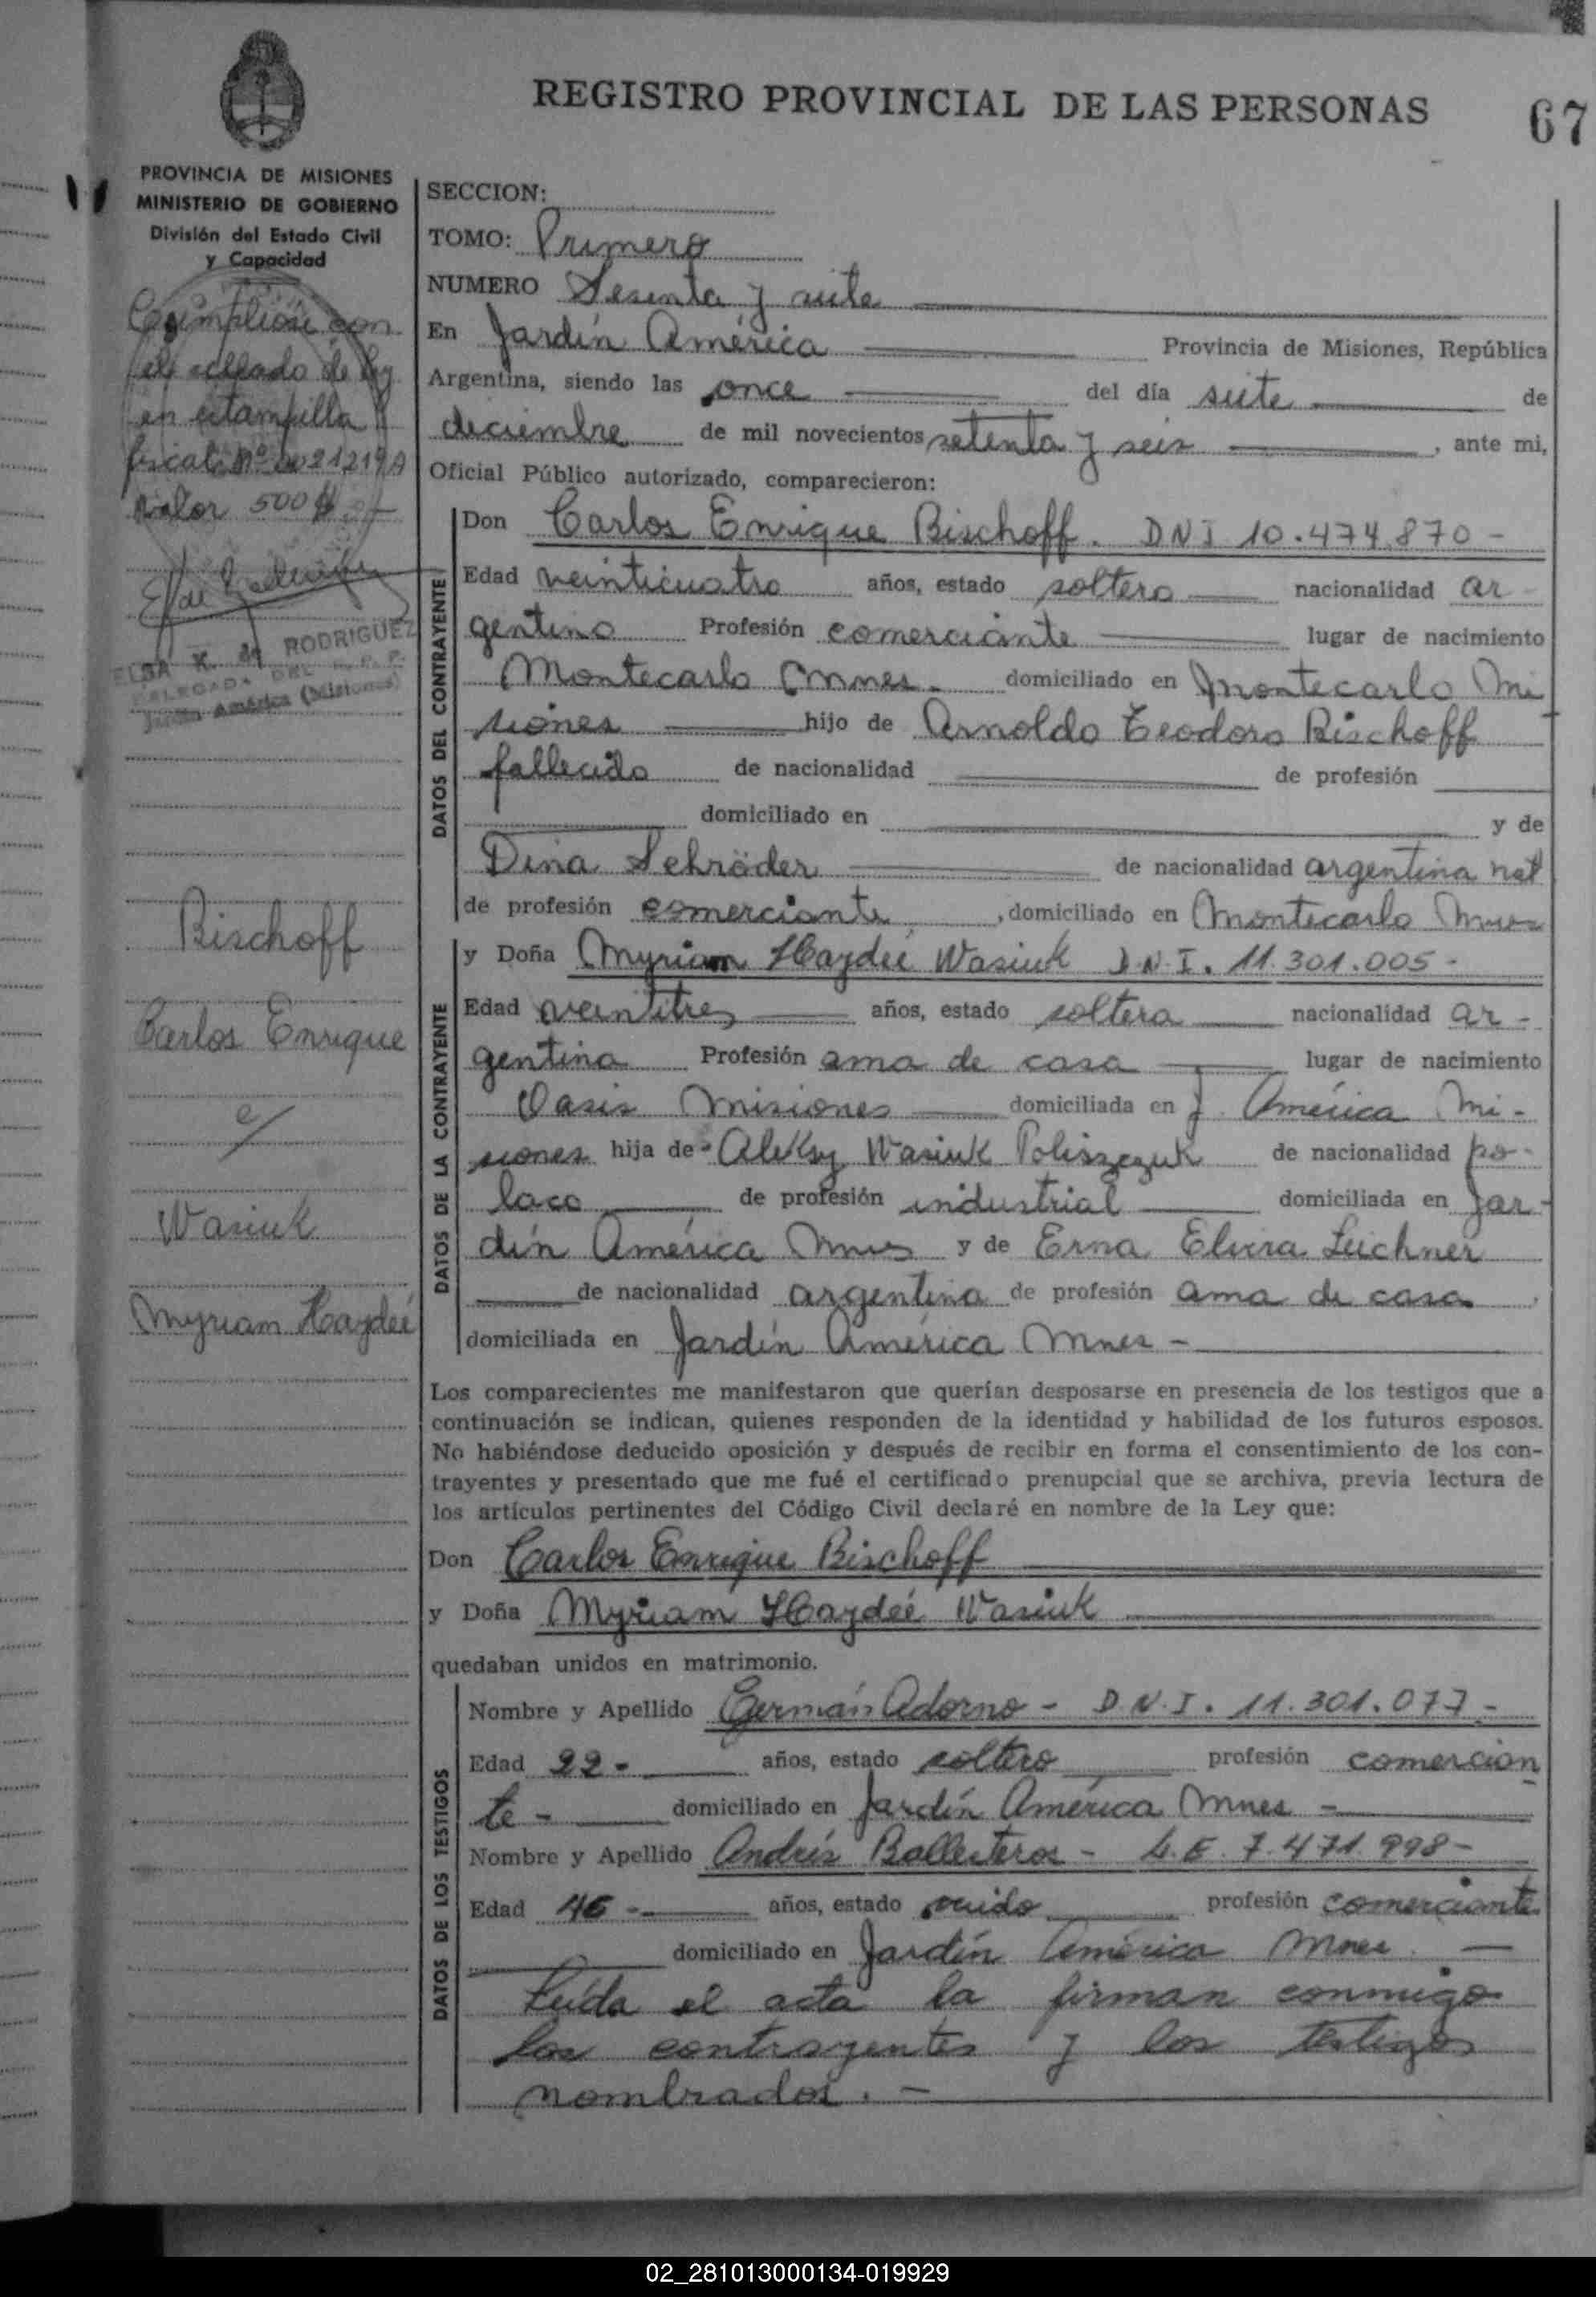 REGISTRO PROVINCIAL DE LAS PERSONAS
67
PROVINCIA DE MISIONES
MINISTERIO DE GOBIERNO
División del Estado Civil
y Capacidad
Cumplióse con
el sellado de ley
en estampilla
fiscal Nº
valor 500 $
RODRIGUEZ
Jardín América (Misiones)
Bischoff
Carlos Enrique
c/
Wasiuk
Myriam Haydeé
SECCION:
TOMO: Primero
NUMERO Sesenta y siete
En Jardín América Provincia de Misiones, República
Argentina, siendo las once del día siete de
diciembre de mil novecientos setenta y seis, ante mi,
Oficial Público autorizado, comparecieron:
DATOS DEL CONTRAYENTE
Don Carlos Enrique Bischoff. DNI 10.474.870 -
Edad veinticuatro años, estado soltero nacionalidad ar-
gentino Profesión comerciante lugar de nacimiento
Montecarlo Mnes. domiciliado en Montecarlo Mi
siones hijo de Arnoldo Teodoro Bischoff
fallecido de nacionalidad de profesión
domiciliado en y de
Dina Schröder de nacionalidad argentina nat
de profesión comerciante, domiciliado en Montecarlo Mnes
DATOS DE LA CONTRAYENTE
y Doña Myriam Haydeé Wasiuk D.N.I. 11.301.005 -
Edad veintitres años, estado soltera nacionalidad ar-
gentina Profesión ama de casa lugar de nacimiento
Oasis Misiones domiciliada en J. América Mi-
siones hija de Aleksy Wasiuk Poliszczuk de nacionalidad po-
laco de profesión industrial domiciliada en Jar-
dín América Mnes y de Erna Elvira Leichner
de nacionalidad argentina de profesión ama de casa,
domiciliada en Jardín América Mnes -
Los comparecientes me manifestaron que querían desposarse en presencia de los testigos que a
continuación se indican, quienes responden de la identidad y habilidad de los futuros esposos.
No habiéndose deducido oposición y después de recibir en forma el consentimiento de los con-
trayentes y presentado que me fué el certificado prenupcial que se archiva, previa lectura de
los artículos pertinentes del Código Civil declaré en nombre de la Ley que:
Don Carlos Enrique Bischoff
y Doña Myriam Haydeé Wasiuk
quedaban unidos en matrimonio.
DATOS DE LOS TESTIGOS
Nombre y Apellido Germán Adorno - D.N.I. 11.301.077 -
Edad 22 - años, estado soltero profesión comercian
te - domiciliado en Jardín América Mnes -
Nombre y Apellido Andrés Ballesteros - L.E. 7.471.998 -
Edad 46 - años, estado viudo profesión comerciante
domiciliado en Jardín América Mnes.
Leída el acta la firman conmigo
los contrayentes y los testigos
nombrados. -
02_281013000134-019929